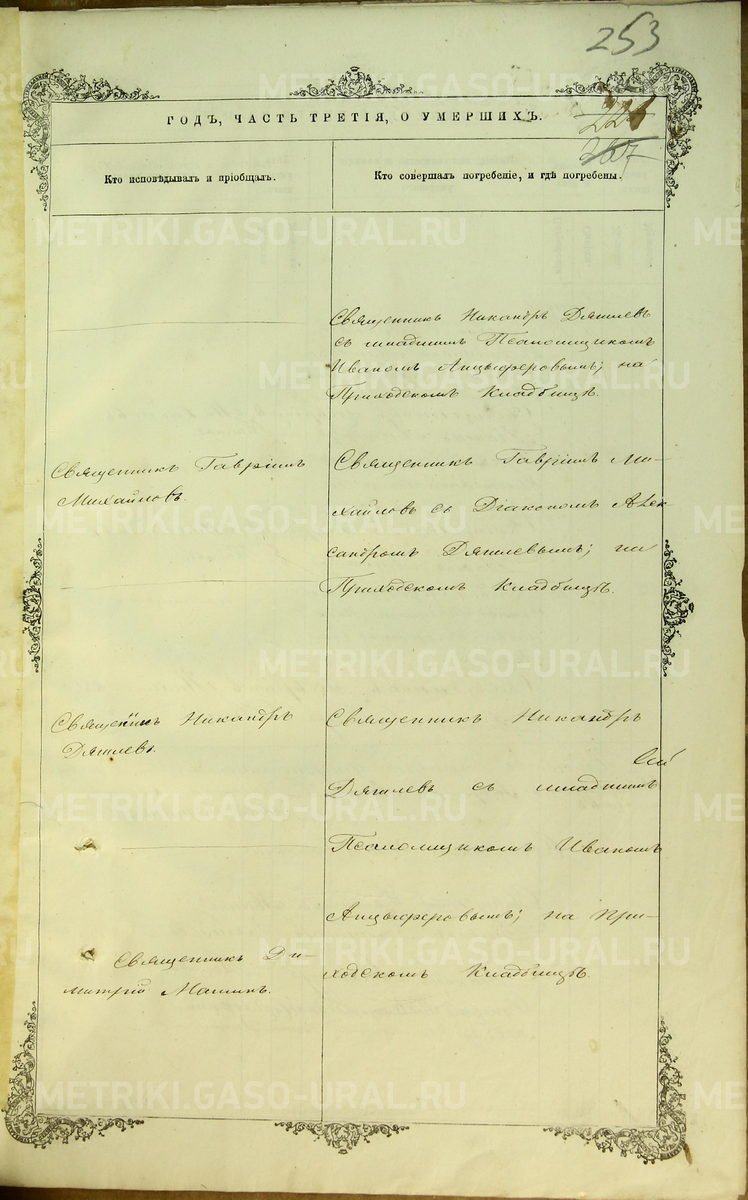 253
221
267
ГОДЪ, ЧАСТЬ ТРЕТІЯ, О УМЕРШИХЪ.
Кто исповѣдывалъ и пріобщалъ.
Кто совершалъ погребеніе, и гдѣ погребены.
Священникъ Никандръ Дягилевъ
съ младшимъ Псаломщикомъ
Иваномъ Анцыферовымъ; на
Приходскомъ Кладбищѣ.
Священникъ Гавріилъ
Михайловъ.
Священникъ Гавріилъ Ми-
хайловъ съ Діакономъ Алек
сандромъ Дягилевымъ; на
Приходскомъ Кладбищѣ.
Священникъ Никандръ
Дягилевъ.
Священникъ Никандръ
Дягилевъ съ младшимъ
Псаломщикомъ Иваномъ
Анцыферовымъ; на При-
ходскомъ Кладбищѣ.
Священникъ Ди-
митрій Маминъ.
METRIKI.GASO-URAL.RU